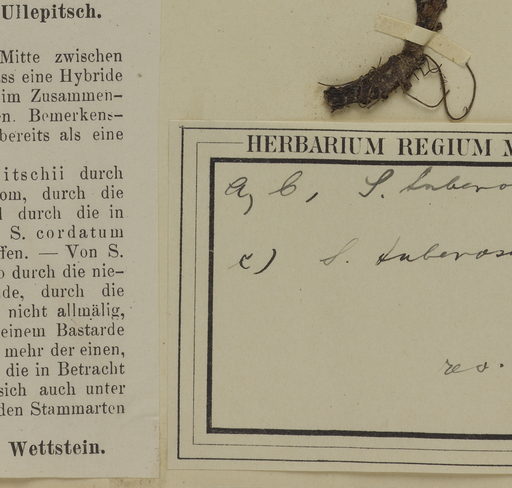 Ullepitsch.
Mitte zwischen
ss eine Hybride
im Zusammen-
en. Bemerkens-
bereits als eine
itschii durch
om, durch die
durch die in
S. cordatum
ffen. — Von S.
o durch die nie-
de, durch die
nicht allmälig,
einem Bastarde
mehr der einen,
die in Betracht
sich auch unter
den Stammarten
Wettstein.
HERBARIUM REGIUM M
a, b, S. tubero
c) S. tuberos